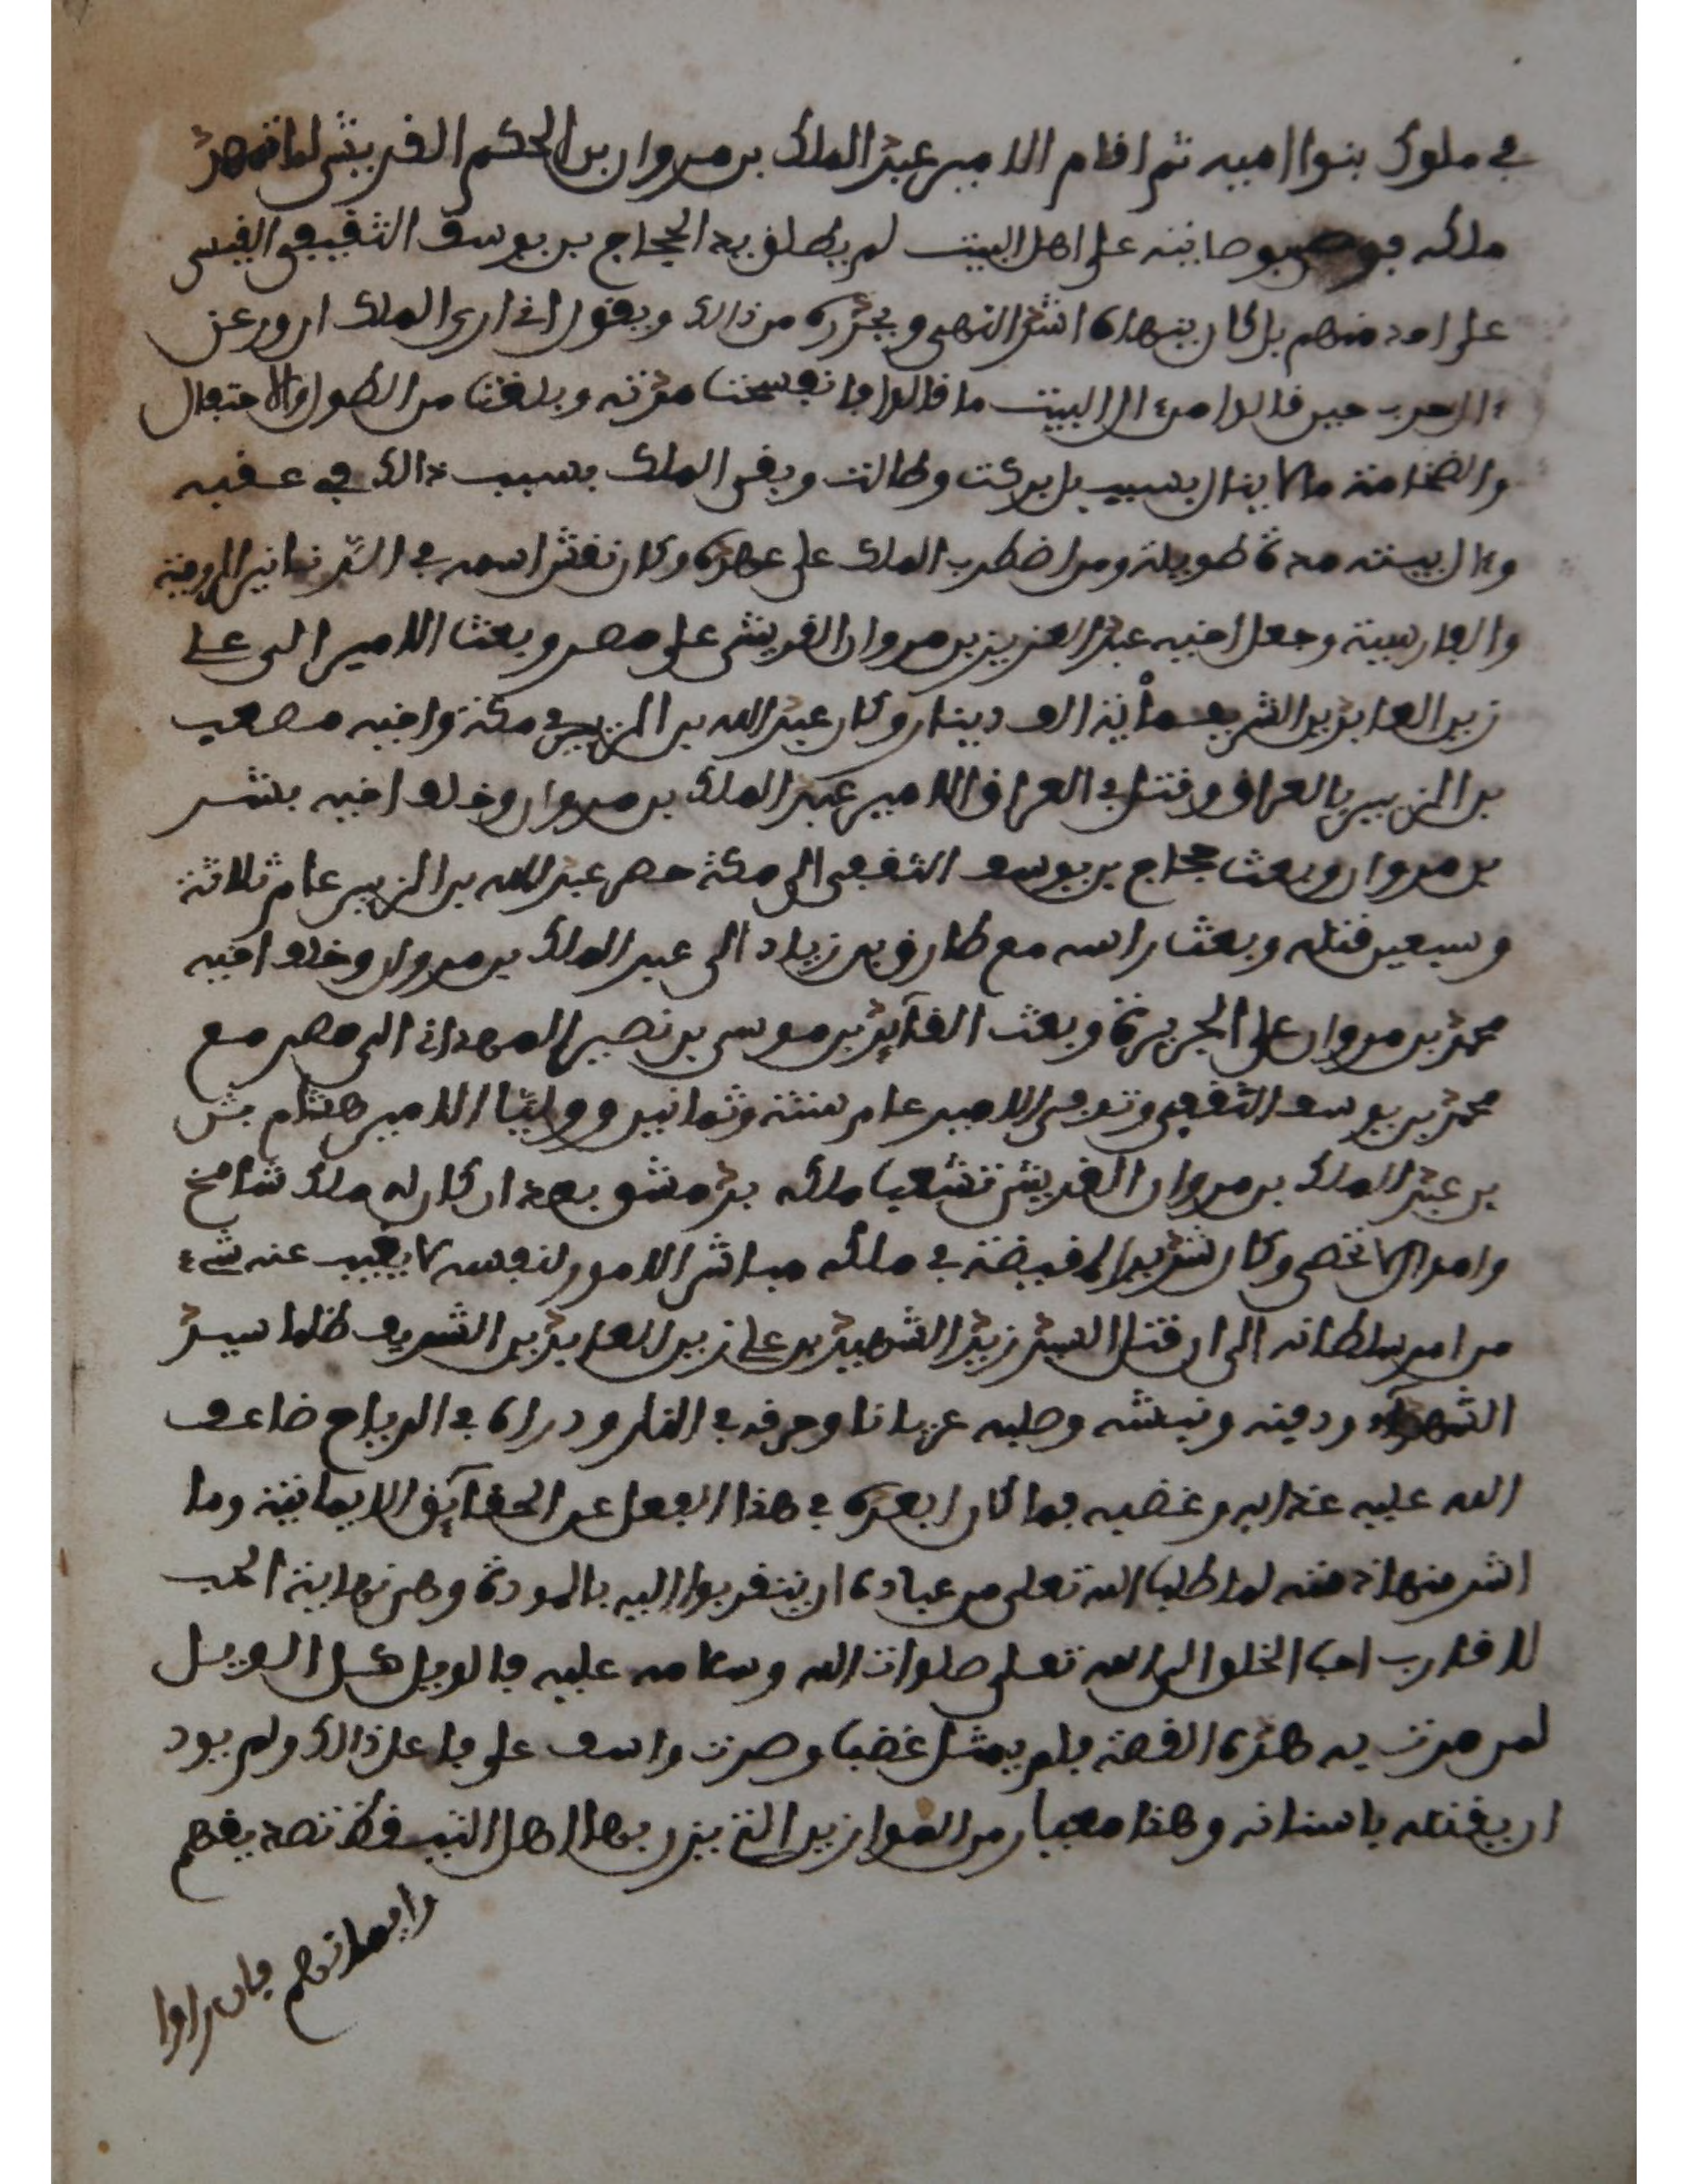 في ملوك بنوا اميه ثم اقام الامير عبد الملك بن مروان بن الحكم القريشي لما تمهد
ملكه بوصايته على اهل البيت لم يطلق يد الحجاج بن يوسف الثقيفي القيسي
على احد منهم بل كان ينهاه اشد النهي ويحذره من ذالك ويقول اني ارى الملك ازور عن
ءال حرب حين قالوا من ءال البيت ما قالوا فانفسحت مدته وبلغت من الطول والاحتفال
والضخامة ما لا ينال بسبب بل بركت وطالت وبقى الملك بسبب ذالك في عقبه
وءال بيته مدة طويلة ومن اضطرب الملك على عهده وكان نقش اسمه في الدنانير الرومية
والفارسية وجعل اخيه عبد العزيز بن مروان القريشي على مصر وبعث الامير الى علي
زين العابدين الشريف مأية الف دينار وكان عبد الله بن الزبير في مكة واخيه مصعب
بن الزبير بالعراق وقتل في العراق الامير عبد الملك بن مروان وخلف اخيه بشر
بن مروان وبعث حجاج بن يوسف الثقفي الى مكة حصر عبد الله بن الزبير عام ثلاثة
وسبعين قتله وبعث راسه مع طارق بن زياد الى عبد الملك بن مروان وخلف اخيه
محمد بن مروان على الجزيرة وبعث القآيد بن موسى بن نصير الهمداني الى مصر مع
محمد بن يوسف الثقفي وتوفى الامير عام ستة وثمانين ووليّا الامير هشام بن
بن عبد الملك بن مروان القريشي تشعبا ملكه بدمشق بعد ان كان له ملك شامخ
واموال لا تحصى وكان شديد القبضة في ملكه مباشر الامور لنفسه لا يغيب عنه شيء
من امر سلطانه الى ان قتل السيد زيد الشهيد بن علي زين العابدين الشريف ظلما سيد
الشهدآء ودفنه ونبشه وصلبه عريانا وحرقه في النار ودراه في الرياح ضاعف
الله عليه عذابه وغضبه فما كان ابعده في هذا الفعل عن الحقآيق الايمانية وما
اشر منها ذمته لما طلب الله تعلى من عباده ان يتقربوا اليه بالمودة وهي نهاية الحب
لاقارب احب الخلق الى الله تعلى صلوات الله وسلامه عليه فالويل كل الويل
لمن مرت به هذه القصة فلم يمتل غضبا وحزن واسف على فاعل ذالك ولم يود
ان يقتله باسنانه وهذا معيار من الموازين التي يزن بها اهل البيت فكر تصديقهم
وايمانهم فان راوا